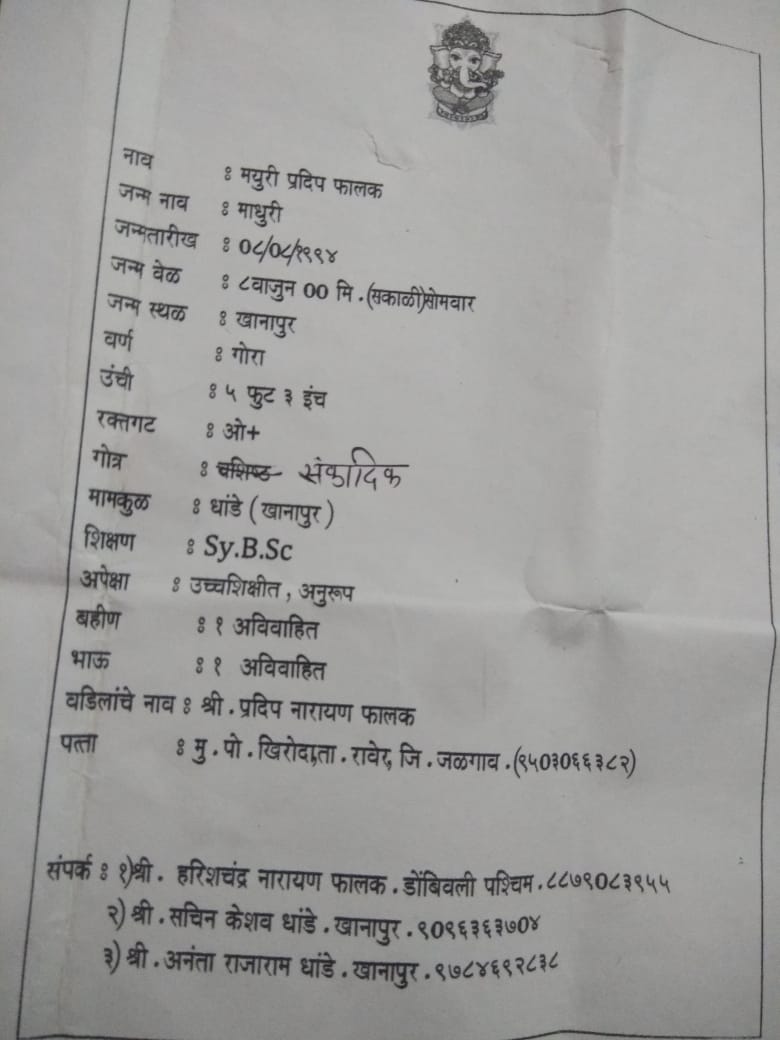 नाव : मयुरी प्रदिप फालक
जन्म नाव : माधुरी
जन्मतारीख : ०८/०८/१९९४
जन्म वेळ : ८वाजुन 00 मि .(सकाळी)सोमवार
जन्म स्थळ : खानापुर
वर्ण : गोरा
उंची : ५ फुट ३ इंच
रक्तगट : ओ+
गोत्र : वशिष्ठ संकादिक
मामकुळ : धांडे ( खानापुर )
शिक्षण : Sy.B.Sc
अपेक्षा : उच्चशिक्षीत , अनुरूप
बहीण : १ अविवाहित
भाऊ : १ अविवाहित
वडिलांचे नाव : श्री . प्रदिप नारायण फालक
पत्ता : मु . पो . खिरोदा,ता . रावेर, जि . जळगाव .(९५०३०६६३८२)
संपर्क : १)श्री . हरिशचंद्र नारायण फालक . डोंबिवली पश्चिम . ८८७९०८३९५५
२) श्री . सचिन केशव धांडे . खानापुर . ९०९६३६३७०४
३) श्री . अनंता राजाराम धांडे . खानापुर . ९७८४६९२८३८